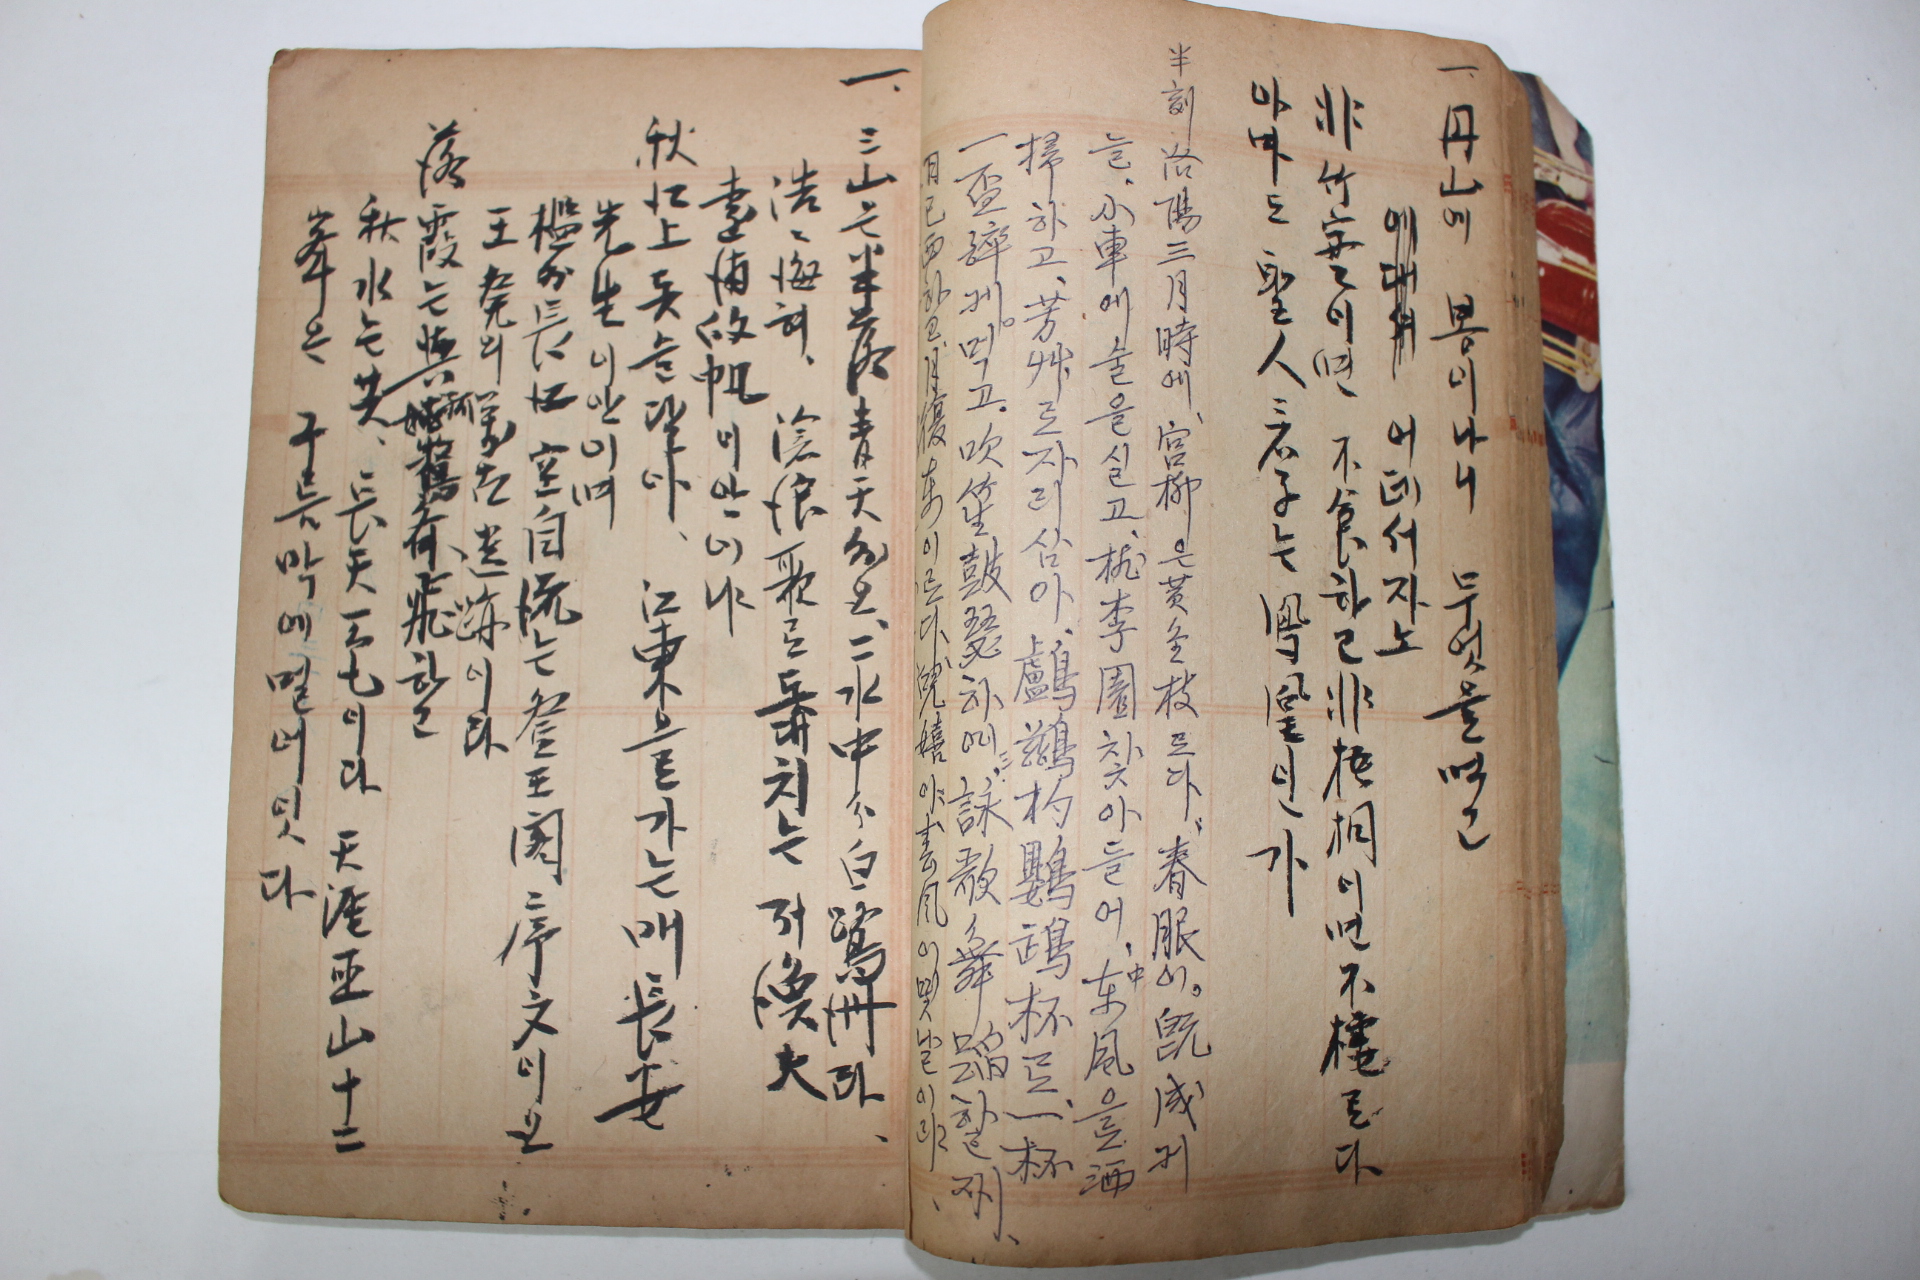 一. 丹山에 봉이나니 무엇을먹고
어데서자노
非竹実이면 不食하고非梧桐이면不棲로다
아마도聖人君子는鳳凰인가
半刻 洛陽三月時에、宮柳은黃金枝로다 春服이 旣成커
늘、小車에술을실고、桃李園찻아들어、東風을洒
掃하고、芳艸로자리삼아、鸕鷀杓鸚鵡杯로、一杯
一盃醉케먹고、吹笙鼓瑟하에 詠歌舞蹈할제、
月已西하고月復東이로다 兒嬉야春風이몃날이랴、
一.
三山은半落青天外오、二水中分白鷺洲라、
浩浩海허、滄浪歌로돗치는저漁夫
遠浦歸帆이안이냐
秋江上돗을달아、江東으로가는배長安
先生이안이며
檻外長江空自流는滕王閣序文이오
王勃의 遺跡이라
落霞는與孤鶩齊飛하고
秋水는共、長天一色이라 天涯巫山十二
峯은 구름막에멀어잇다